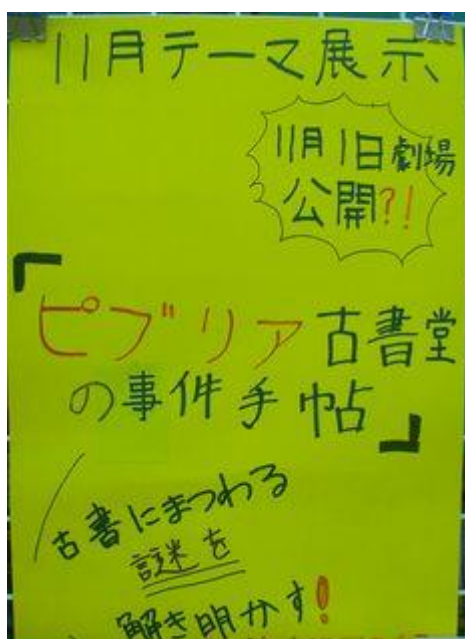 11月テーマ展示
11月1日劇場
公開?!
『
ビブリア古書堂
の事件手帖
』
古書にまつわる
謎を
解き明かす!